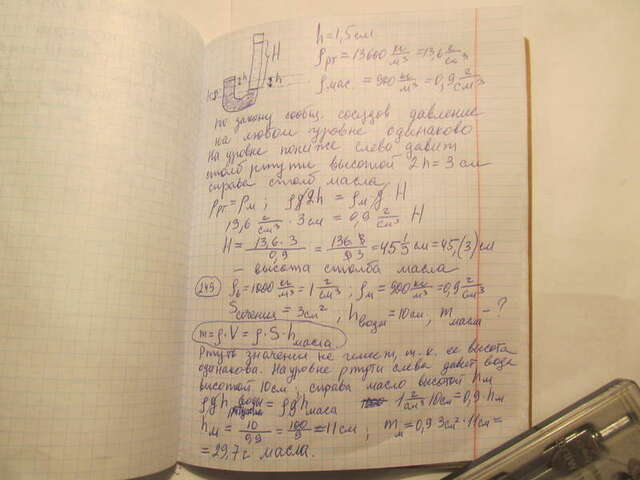 h = 1,5 см
ρрт = 13600 кг/м³ = 13,6 г/см³
ρмас. = 900 кг/м³ = 0,9 г/см³
H
h
h
по закону сообщ. сосудов давление
на любом уровне одинаково
На уровне пониже слева давит
столб ртути высотой 2h = 3 см
справа столб масла
Pрт = Pм ; ρg2h = ρм g H
13,6 г/см³ · 3см = 0,9 г/см³ H
H = 13,6·3/0,9 = 136/3 = 45 1/3 см = 45,(3) см
– высота столба масла
249 ρв = 1000 кг/м³ = 1 г/см³ ; ρм = 900 кг/м³ = 0,9 г/см³
Sсечения = 3см² , hводы = 10см, mмасла – ?
m = ρ·V = ρ·S·hмасла.
Ртуть значения не имеет, т.к. ее высота
одинакова. На уровне ртути слева давит вода
высотой 10см ; справа масло высотой hм
ρghводы = ρghмасла 1 г/см³ 10см = 0,9·hм
hм = 10/0,9 = 100/9 = 11см ; mм = 0,9·3см²·11см =
= 29,7г масла.